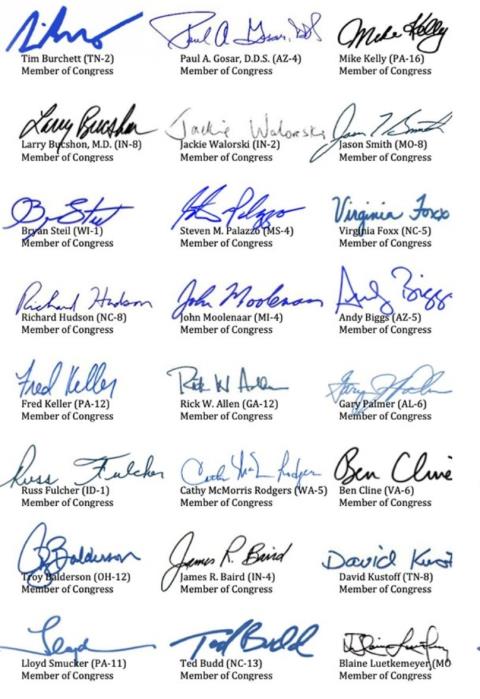 Tim Burchett (TN-2) Paul A. Gosar, D.D.S. (AZ-4) Mike Kelly (PA-16)
Member of Congress Member of Congress Member of Congress
Larry Bucshon Jackie Walorski Jason T Smith
Larry Bucshon, M.D. (IN-8) Jackie Walorski (IN-2) Jason Smith (MO-8)
Member of Congress Member of Congress Member of Congress
Virginia Foxx
Bryan Steil (WI-1) Steven M. Palazzo (MS-4) Virginia Foxx (NC-5)
Member of Congress Member of Congress Member of Congress
Richard Hudson John Moolenaar Andy Biggs
Richard Hudson (NC-8) John Moolenaar (MI-4) Andy Biggs (AZ-5)
Member of Congress Member of Congress Member of Congress
Fred Keller Rick W Allen
Fred Keller (PA-12) Rick W. Allen (GA-12) Gary Palmer (AL-6)
Member of Congress Member of Congress Member of Congress
Russ Fulcher Ben Cline
Russ Fulcher (ID-1) Cathy McMorris Rodgers (WA-5) Ben Cline (VA-6)
Member of Congress Member of Congress Member of Congress
Balderson James R. Baird David Kustoff
Troy Balderson (OH-12) James R. Baird (IN-4) David Kustoff (TN-8)
Member of Congress Member of Congress Member of Congress
Lloyd Ted Budd
Lloyd Smucker (PA-11) Ted Budd (NC-13) Blaine Luetkemeyer (MO
Member of Congress Member of Congress Member of Congress